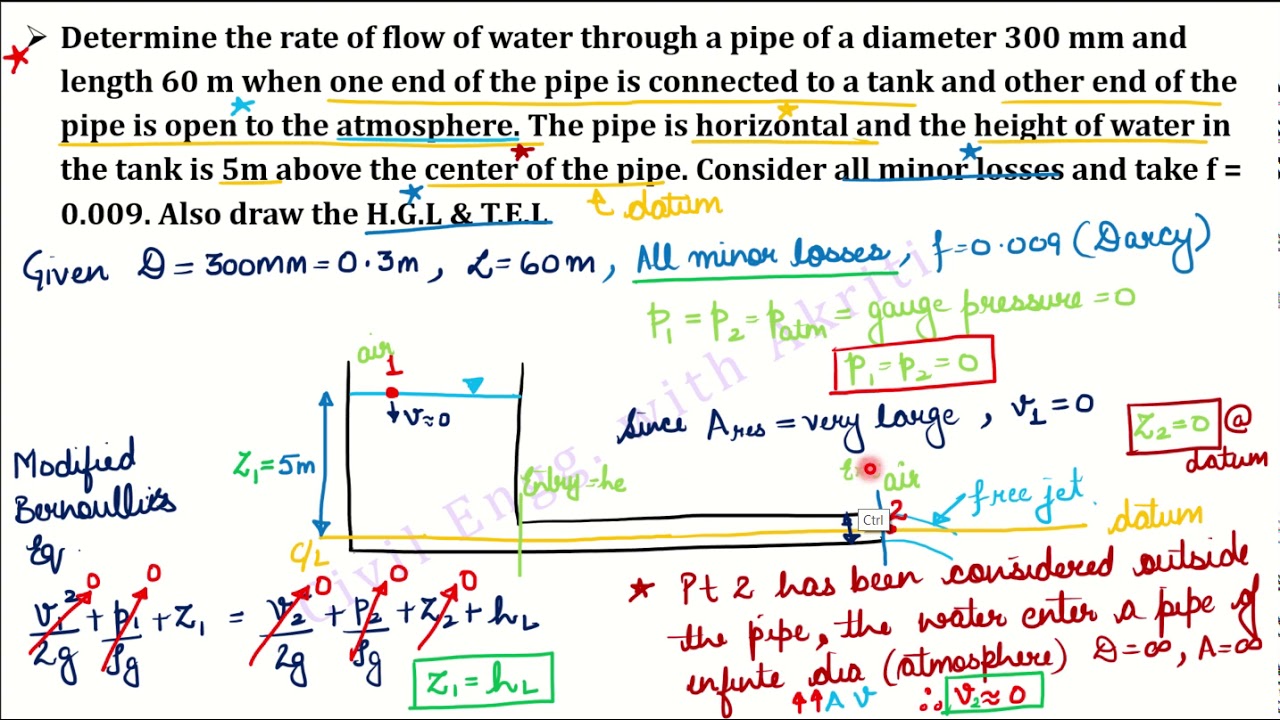 ➢ Determine the rate of flow of water through a pipe of a diameter 300 mm and
length 60 m when one end of the pipe is connected to a tank and other end of the
pipe is open to the atmosphere. The pipe is horizontal and the height of water in
the tank is 5m above the center of the pipe. Consider all minor losses and take f =
0.009. Also draw the H.G.L & T.E.L
datum
Given D = 300mm = 0.3m, L = 60m, All minor losses, f = 0.009 (Darcy)
P₁ = P₂ = Patm = gauge pressure = 0
P₁ = P₂ = 0
air
1
v≈0
Since Ares = very large, v₁ = 0
Z₂ = 0 @
datum
Z₁ = 5m
Entry = he
air
2
Ctrl
free jet.
datum
C/L
Modified
Bernoulli's
Eq
v₁²/2g + P₁/ρg + Z₁ = v₂²/2g + P₂/ρg + Z₂ + hL
0 0 0 0 0
Z₁ = hL
★ Pt 2 has been considered outside
the pipe, the water enter a pipe of
enfinte dia (atmosphere) D = ∞, A = ∞
↑↑A v ∴ v₂ ≈ 0
Civil Engg. with Akriti